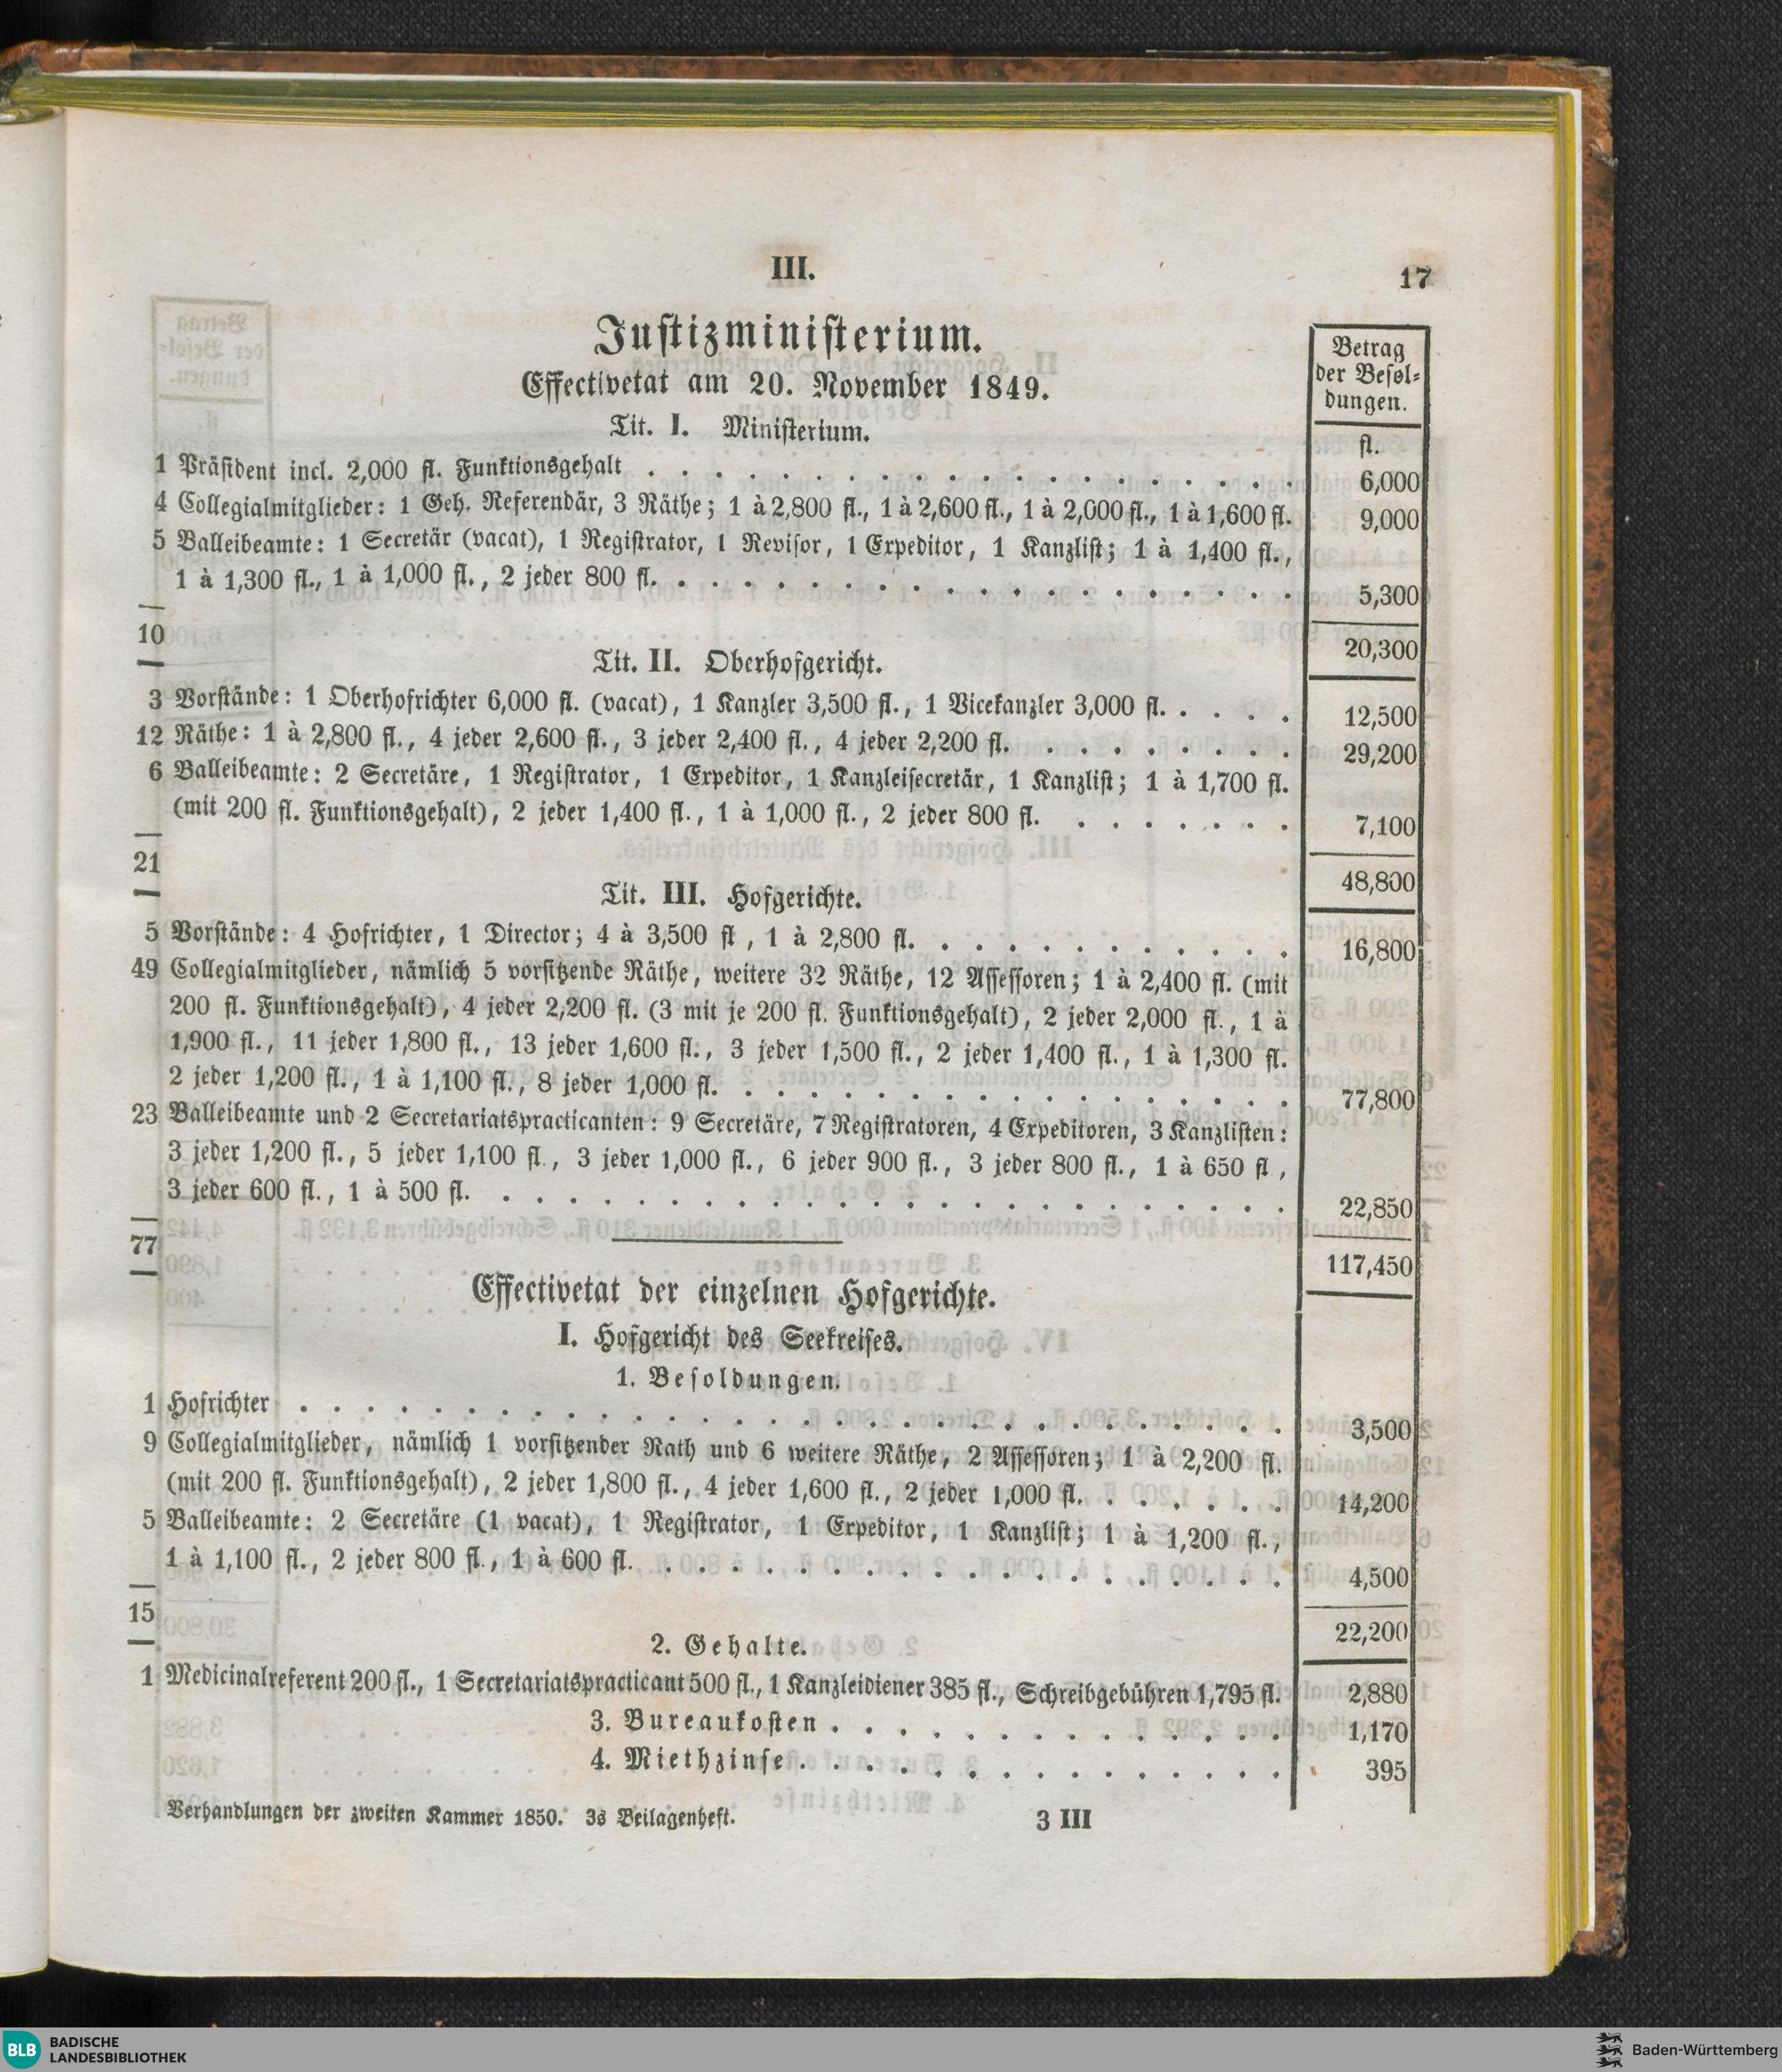 III.
17
Justizministerium.
Effectivetat am 20. November 1849.
Tit. I. Ministerium.
Betrag
der Besol-
dungen.
fl.
1 Präsident incl. 2,000 fl. Funktionsgehalt . . . . . . . . . . . . . . . . . . . . 6,000
4 Collegialmitglieder: 1 Geh. Referendär, 3 Räthe; 1 à 2,800 fl., 1 à 2,600 fl., 1 à 2,000 fl., 1 à 1,600 fl. 9,000
5 Balleibeamte: 1 Secretär (vacat), 1 Registrator, 1 Revisor, 1 Expeditor, 1 Kanzlist; 1 à 1,400 fl.,
1 à 1,300 fl., 1 à 1,000 fl., 2 jeder 800 fl. . . . . . . . . . . . . . . . . . . . 5,300
10 20,300
Tit. II. Oberhofgericht.
3 Vorstände: 1 Oberhofrichter 6,000 fl. (vacat), 1 Kanzler 3,500 fl., 1 Vicekanzler 3,000 fl. . . . . 12,500
12 Räthe: 1 à 2,800 fl., 4 jeder 2,600 fl., 3 jeder 2,400 fl., 4 jeder 2,200 fl. . . . . . . . . 29,200
6 Balleibeamte: 2 Secretäre, 1 Registrator, 1 Expeditor, 1 Kanzleisecretär, 1 Kanzlist; 1 à 1,700 fl.
(mit 200 fl. Funktionsgehalt), 2 jeder 1,400 fl., 1 à 1,000 fl., 2 jeder 800 fl. . . . . . . . 7,100
21 48,800
Tit. III. Hofgerichte.
5 Vorstände: 4 Hofrichter, 1 Director; 4 à 3,500 fl , 1 à 2,800 fl. . . . . . . . . . . . 16,800
49 Collegialmitglieder, nämlich 5 vorsitzende Räthe, weitere 32 Räthe, 12 Assessoren; 1 à 2,400 fl. (mit
200 fl. Funktionsgehalt), 4 jeder 2,200 fl. (3 mit je 200 fl. Funktionsgehalt), 2 jeder 2,000 fl., 1 à
1,900 fl., 11 jeder 1,800 fl., 13 jeder 1,600 fl., 3 jeder 1,500 fl., 2 jeder 1,400 fl., 1 à 1,300 fl.
2 jeder 1,200 fl., 1 à 1,100 fl., 8 jeder 1,000 fl. . . . . . . . . . . . . . . . . . 77,800
23 Balleibeamte und 2 Secretariatspracticanten: 9 Secretäre, 7 Registratoren, 4 Expeditoren, 3 Kanzlisten:
3 jeder 1,200 fl., 5 jeder 1,100 fl., 3 jeder 1,000 fl., 6 jeder 900 fl., 3 jeder 800 fl., 1 à 650 fl ,
3 jeder 600 fl., 1 à 500 fl. . . . . . . . . . . . . . . . . . . . . . . . . 22,850
77 117,450
Effectivetat der einzelnen Hofgerichte.
I. Hofgericht des Seekreises.
1. Besoldungen.
1 Hofrichter . . . . . . . . . . . . . . . . . . . . . . . . . . . . . . 3,500
9 Collegialmitglieder, nämlich 1 vorsitzender Rath und 6 weitere Räthe, 2 Assessoren; 1 à 2,200 fl.
(mit 200 fl. Funktionsgehalt), 2 jeder 1,800 fl., 4 jeder 1,600 fl., 2 jeder 1,000 fl. . . . . . . 14,200
5 Balleibeamte: 2 Secretäre (1 vacat), 1 Registrator, 1 Expeditor, 1 Kanzlist; 1 à 1,200 fl.,
1 à 1,100 fl., 2 jeder 800 fl., 1 à 600 fl. . . . . . . . . . . . . . . . . . . . 4,500
15 22,200
2. Gehalte.
1 Medicinalreferent 200 fl., 1 Secretariatspracticant 500 fl., 1 Kanzleidiener 385 fl., Schreibgebühren 1,795 fl. 2,880
3. Bureaukosten . . . . . . . . . . . . . . 1,170
4. Miethzinse . . . . . . . . . . . . . . . 395
Verhandlungen der zweiten Kammer 1850. 3s Beilagenheft.
3 III
BLB BADISCHE
LANDESBIBLIOTHEK
Baden-Württemberg